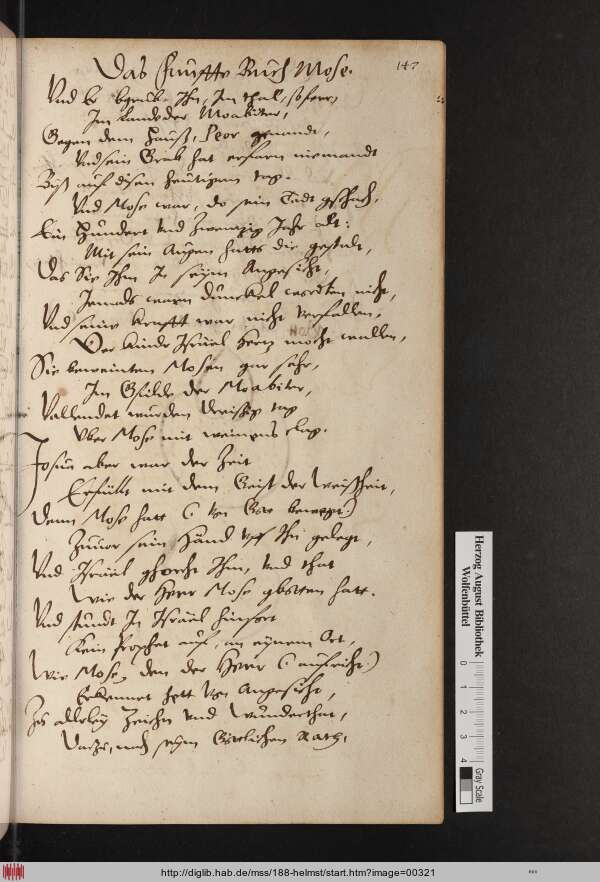 Das funffte Buch Mose.
147
Und Er begrub Ihn, Im thal, so ferr,
Im Lande der Moabiter,
Gegen dem Hauß, Peor genandt,
Und sein Grab hat erfarn niemandt
Biß auf disen heutigen tag.
Und Mose war, do sein Todt gschach,
Ein Hundert und Zwenzig Jahr alt:
Mit sein Augen hatts die gestalt,
Das Sie Ihm In seynm Angesicht,
Jemals warn dunckel worden nicht,
Und seine krafft war nicht verfallen,
Der kinde Israel Hertz mocht wallen,
Sie beweinten Mosen gar sehr,
Im Gfilde der Moabiter,
Vollendet wurden dreissig tag
Uber Mose mit weinens klag.
Josua aber war der Zeit
Erfüllt mit dem Geist der Weißheit,
Denn Mose hatt (von Gott bewegt)
Zuvor sein Händ uff Ihn gelegt,
Und Israel ghorcht Ihm, und that
Wie der Herr Mose gbotten hatt.
Und stundt In Israel hinfort
Kein prophet auf, an eynem Ort,
Wie Mose, den der Herr (aufricht)
Erkennet hett von Angesicht,
Zu allerley Zeichn und Wunderthat,
Darzu, nach seynm Göttlichen Rath,
Herzog August Bibliothek
Wolfenbüttel
0 1 2 3 4
Gray Scale
http://diglib.hab.de/mss/188-helmst/start.htm?image=00321